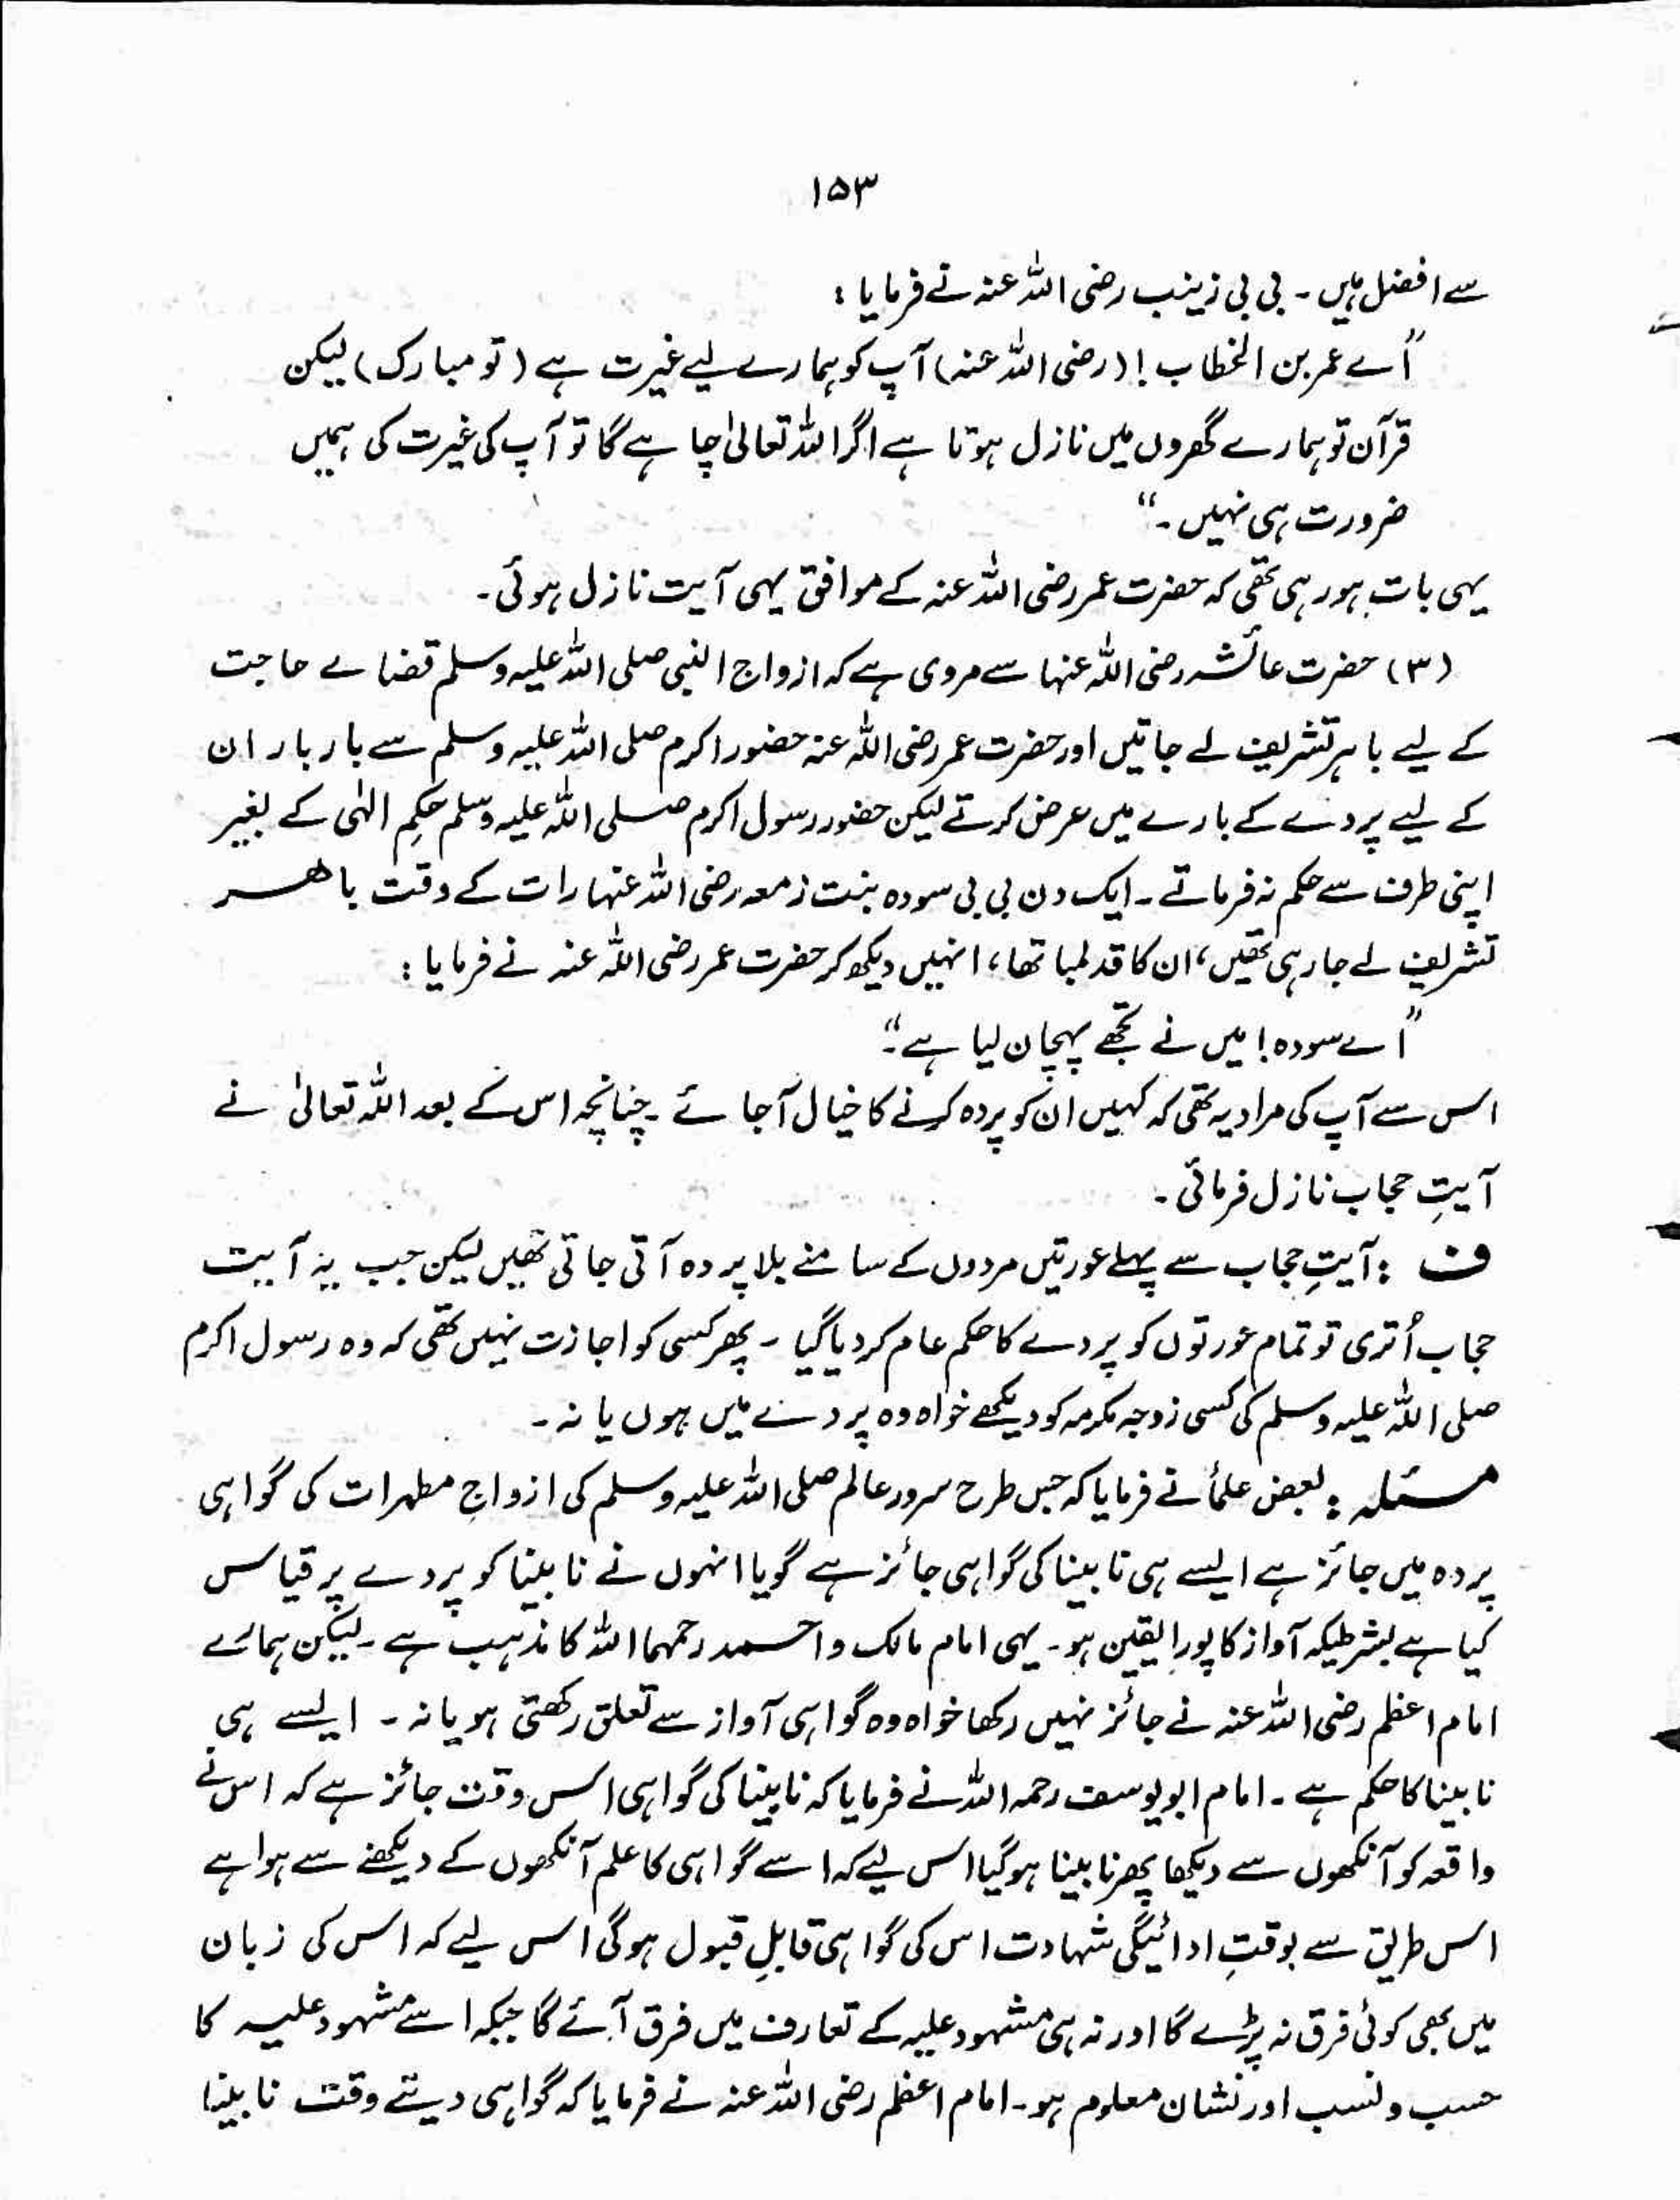 ۱۵۳
سے افضل ہیں ۔ بی بی زینب رضی اللہ عنہ نے فرمایا :
"اے عمر بن الخطاب ! (رضی اللہ عنہ) آپ کو ہمارے لیے غیرت ہے (تو مبارک) لیکن
قرآن تو ہمارے گھروں میں نازل ہوتا ہے اگر اللہ تعالیٰ چاہے گا تو آپ کی غیرت کی ہمیں
ضرورت ہی نہیں ۔"
یہی بات ہو رہی تھی کہ حضرت عمر رضی اللہ عنہ کے موافق یہی آیت نازل ہوئی ۔
(۳) حضرت عائشہ رضی اللہ عنہا سے مروی ہے کہ ازواج النبی صلی اللہ علیہ وسلم قضائے حاجت
کے لیے باہر تشریف لے جاتیں اور حضرت عمر رضی اللہ عنہ حضور اکرم صلی اللہ علیہ وسلم سے بار بار ان
کے لیے پردے کے بارے میں عرض کرتے لیکن حضور رسول اکرم صلی اللہ علیہ وسلم حکمِ الہٰی کے بغیر
اپنی طرف سے حکم نہ فرماتے ۔ ایک دن بی بی سودہ بنت زمعہ رضی اللہ عنہا رات کے وقت باھر
تشریف لے جا رہی تھیں ، ان کا قد لمبا تھا ، انہیں دیکھ کر حضرت عمر رضی اللہ عنہ نے فرمایا :
"اے سودہ ! میں نے تجھے پہچان لیا ہے ۔"
اس سے آپ کی مراد یہ تھی کہ کہیں ان کو پردہ کرنے کا خیال آجائے ۔ چنانچہ اس کے بعد اللہ تعالیٰ نے
آیتِ حجاب نازل فرمائی ۔
ف : آیتِ حجاب سے پہلے عورتیں مردوں کے سامنے بلا پردہ آتی جاتی تھیں لیکن جب یہ آیت
حجاب اُتری تو تمام عورتوں کو پردے کا حکم عام کر دیا گیا ۔ پھر کسی کو اجازت نہیں تھی کہ وہ رسول اکرم
صلی اللہ علیہ وسلم کی کسی زوجہ مکرمہ کو دیکھے خواہ وہ پردے میں ہوں یا نہ ۔
مسئلہ : بعض علمأ نے فرمایا کہ جس طرح سرور عالم صلی اللہ علیہ وسلم کی ازواجِ مطہرات کی گواہی
پردہ میں جائز ہے ایسے ہی نابینا کی گواہی جائز ہے گویا انہوں نے نابینا کو پردے پر قیاس
کیا ہے بشرطیکہ آواز کا پورا یقین ہو ۔ یہی امام مالک و احمد رحمہما اللہ کا مذہب ہے ۔ لیکن ہمارے
امام اعظم رضی اللہ عنہ نے جائز نہیں رکھا خواہ وہ گواہی آواز سے تعلق رکھتی ہو یا نہ ۔ ایسے ہی
نابینا کا حکم ہے ۔ امام ابو یوسف رحمہ اللہ نے فرمایا کہ نابینا کی گواہی اس وقت جائز ہے کہ اس نے
واقعہ کو آنکھوں سے دیکھا پھر نابینا ہوگیا اس لیے کہ اسے گواہی کا علم آنکھوں کے دیکھنے سے ہوا ہے
اس طریق سے بوقتِ ادائیگی شہادت اس کی گواہی قابلِ قبول ہوگی اس لیے کہ اس کی زبان
میں بھی کوئی فرق نہ پڑے گا اور نہ ہی مشہود علیہ کے تعارف میں فرق آئے گا جبکہ اسے مشہود علیہ کا
حسب و نسب اور نشان معلوم ہو ۔ امام اعظم رضی اللہ عنہ نے فرمایا کہ گواہی دیتے وقت نابینا